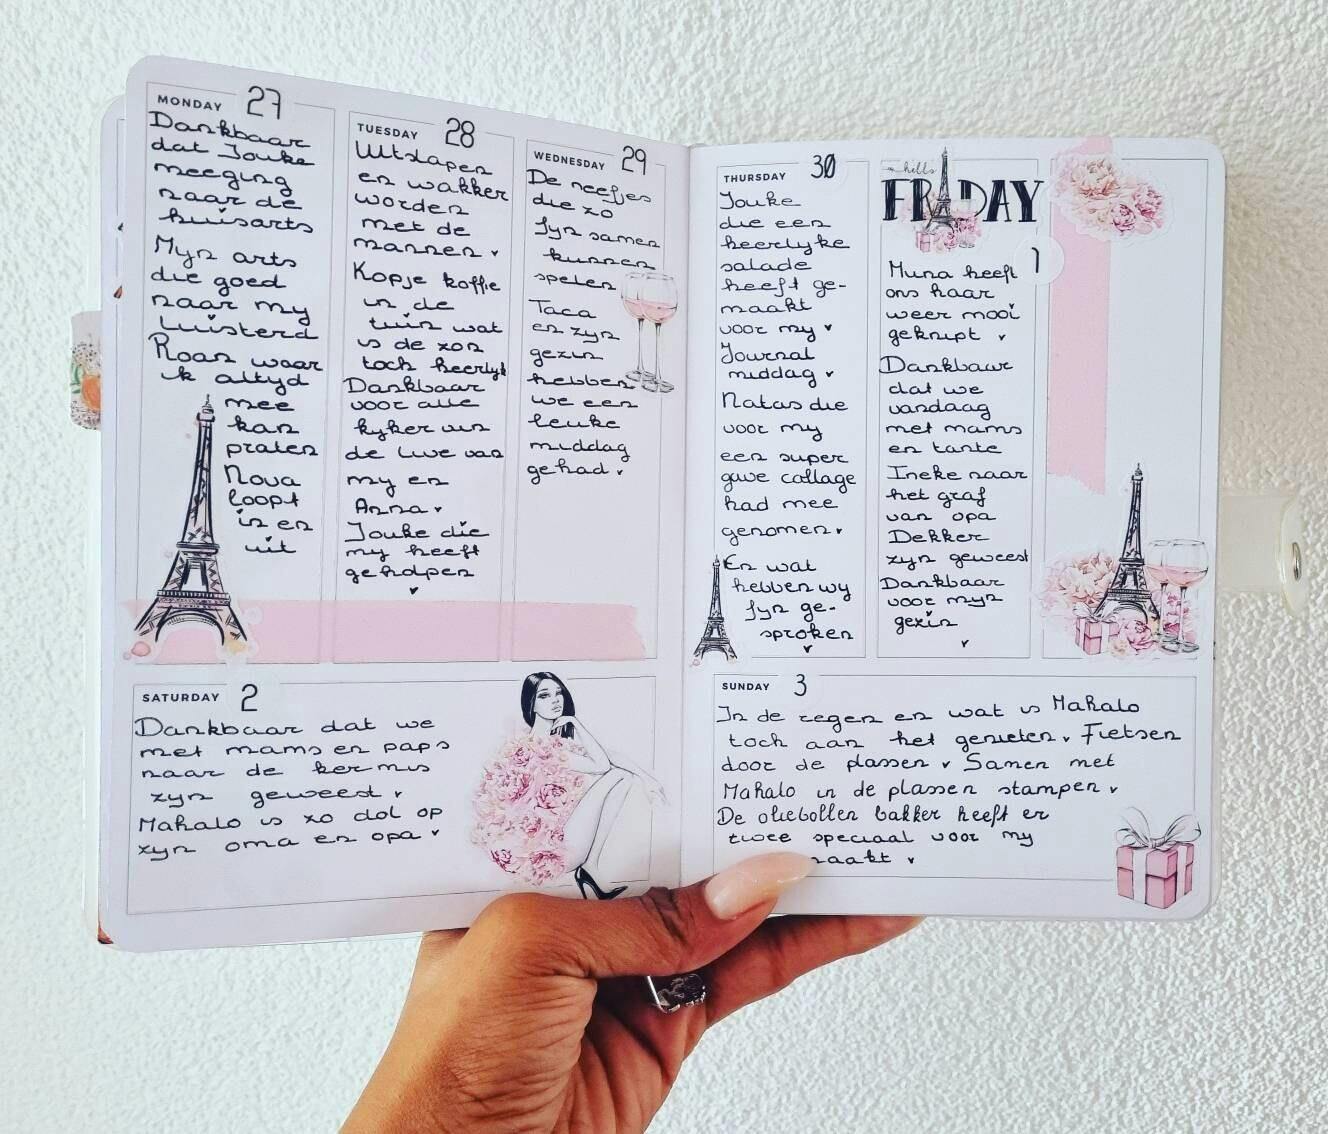 MONDAY 27
Dankbaar
dat Jouke
meeging
naar de
huisarts
Myn arts
die goed
naar my
luisterd
Roan waar
ik altyd
mee
kan
praten
Nova
loopt
in en
uit
TUESDAY 28
Uitslapen
en wakker
worden
met de
mannen
Kopje koffie
in de
tuin wat
is de zon
toch heerlyk
Dankbaar
voor alle
kyker uin
de live van
my en
Anna
Jouke die
my heeft
geholpen
WEDNESDAY 29
De neefjes
die zo
fyn samen
kunnen
spelen
Taca
en zyn
gezin
hebben
we een
leuke
middag
gehad
THURSDAY 30
Jouke
die een
heerlyke
salade
heeft ge-
maakt
voor my
Journal
middag
Natas die
voor my
een super
gave collage
had mee
genomen
En wat
hebben wy
fyn ge-
sproken
hello
FRIDAY
1
Muna heeft
ons haar
weer mooi
geknipt
Dankbaar
dat we
vandaag
met mams
en tante
Ineke naar
het graf
van opa
Dekker
zyn geweest
Dankbaar
voor myn
gezin
SATURDAY 2
Dankbaar dat we
met mams en paps
naar de kermis
zyn geweest
Mahalo is zo dol op
zyn oma en opa
SUNDAY 3
In de regen en wat is Mahalo
toch aan het genieten Fietsen
door de plassen Samen met
Mahalo in de plassen stampen
De oliebollen bakker heeft er
twee speciaal voor my
maakt